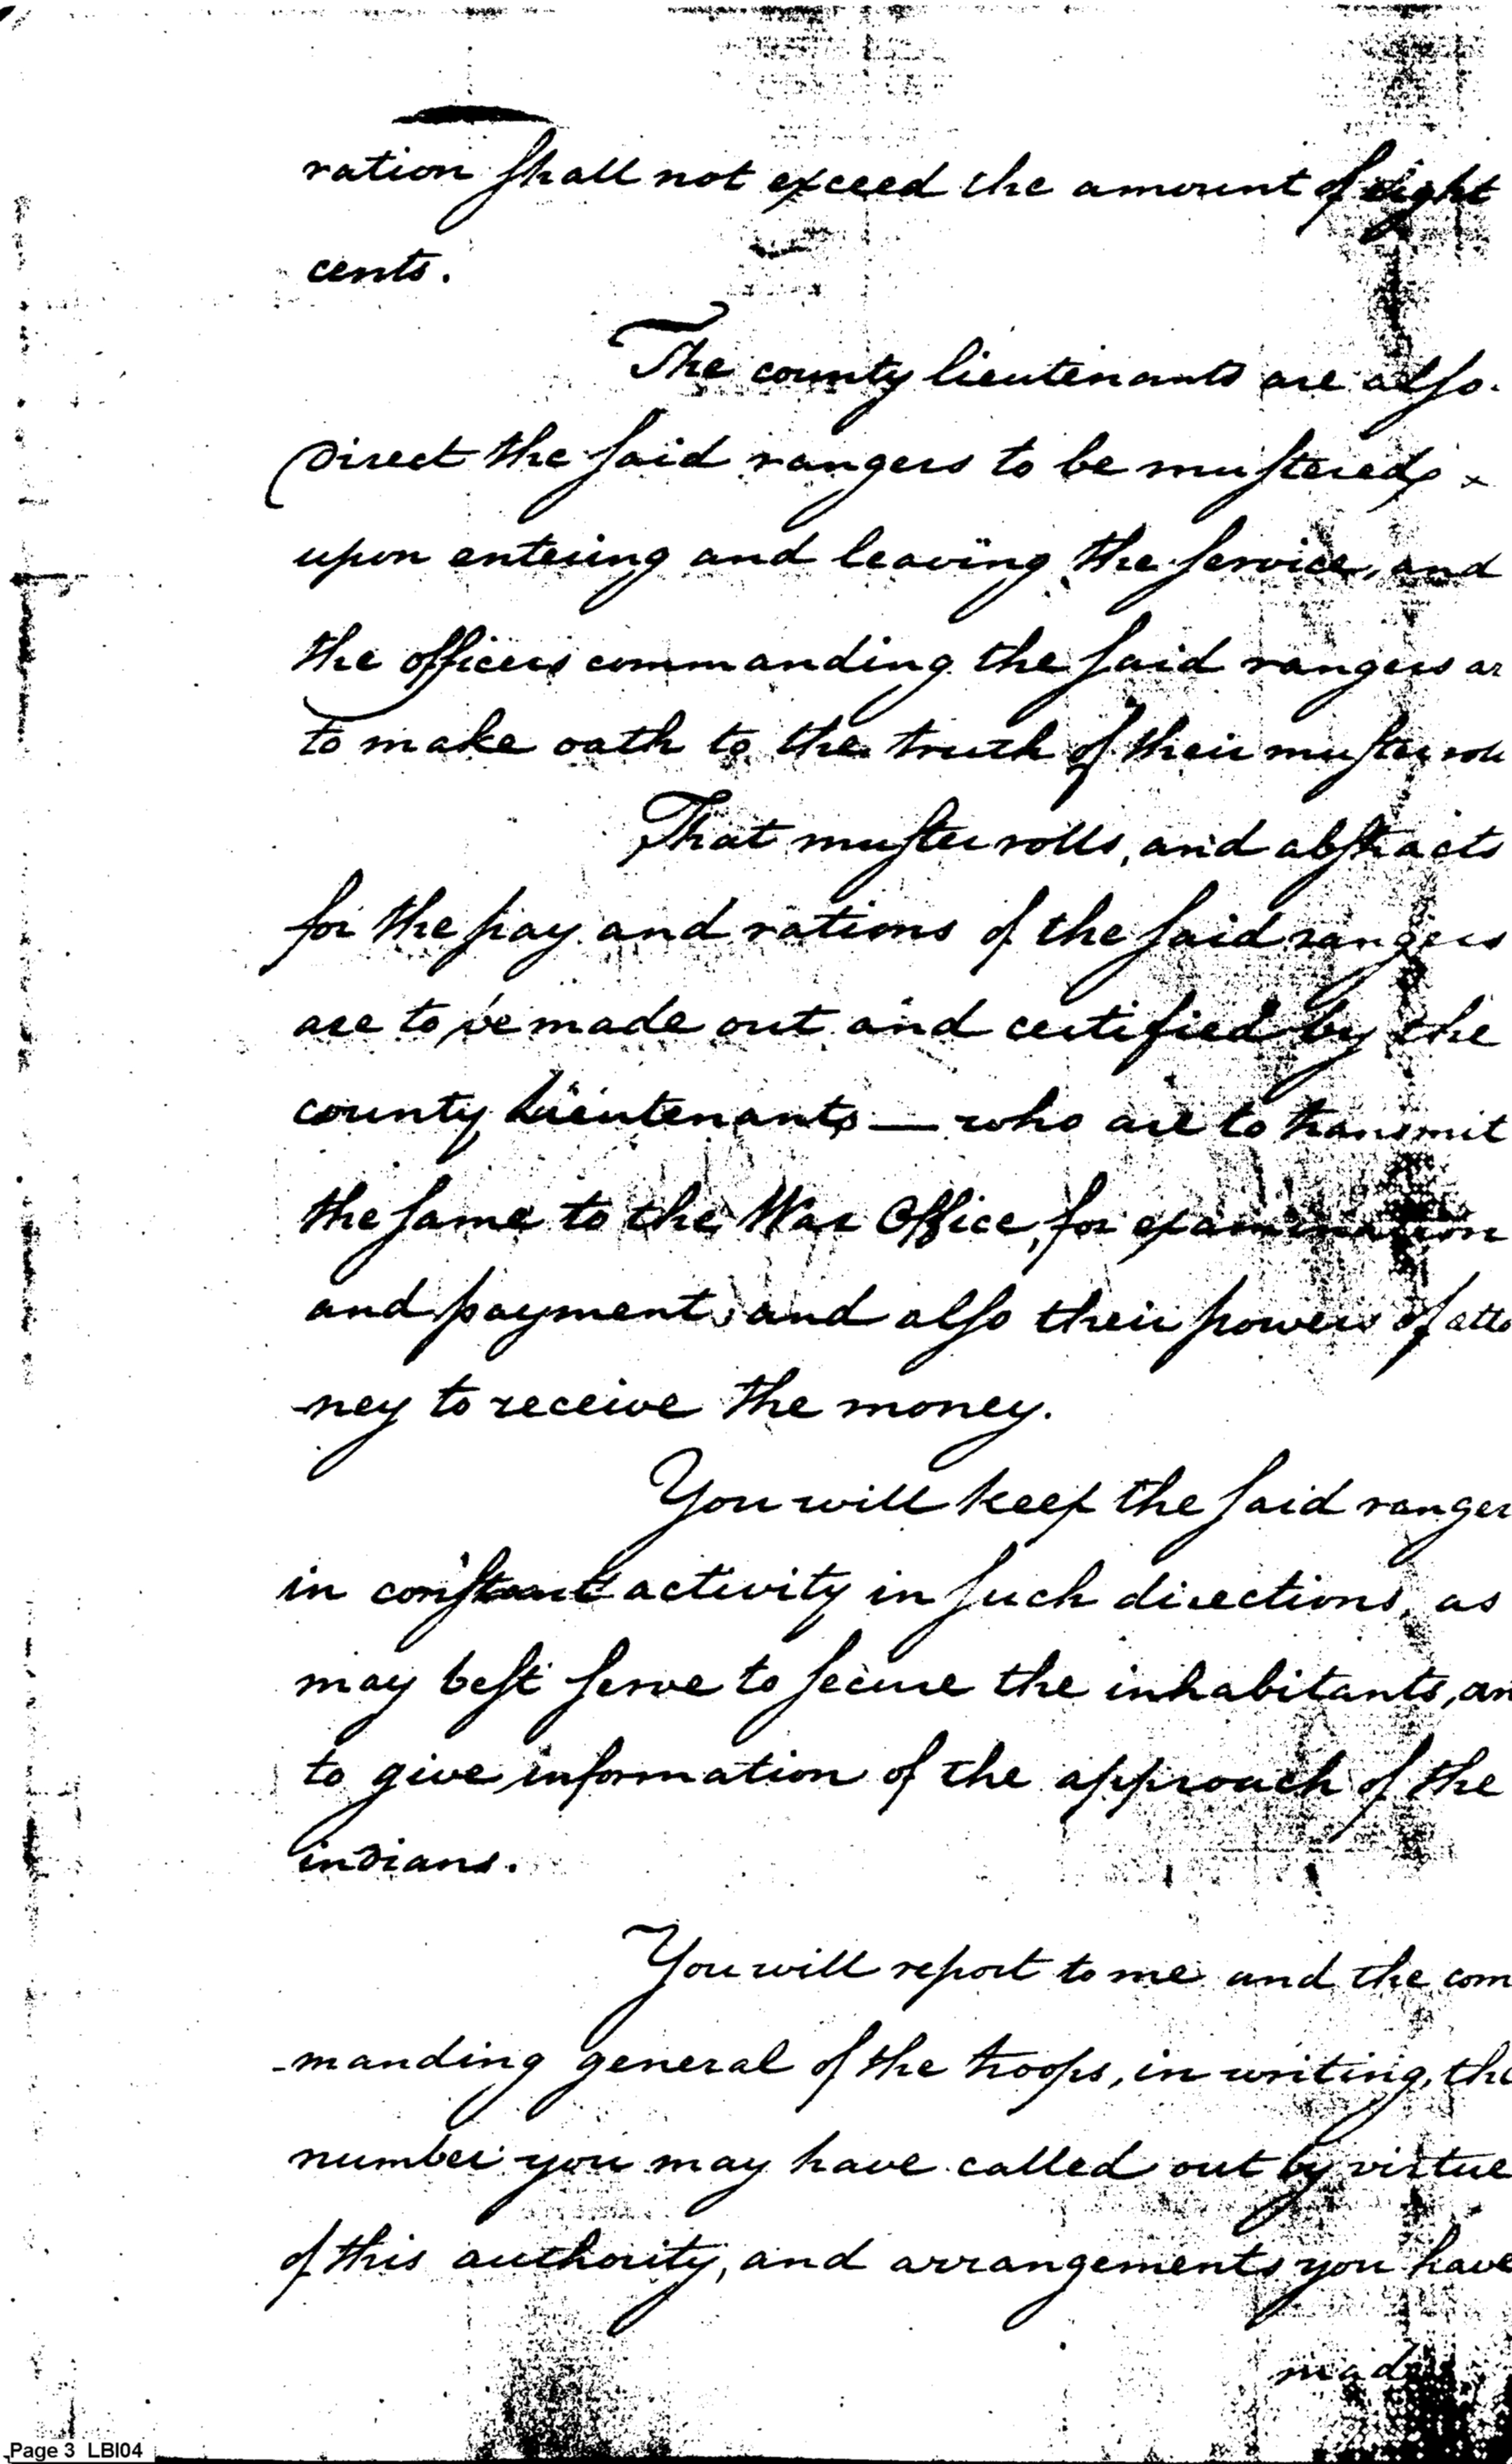 ration shall not exceed the amount of eight
cents.
The county lieutenants are also
Direct the said rangers to be mustered
upon entering and leaving the service, and
the officers commanding the said rangers ar
to make oath to the truth of their muster rol
That muster rolls, and abstracts
for the pay and rations of the said rangers
are to be made out and certified by the
county lieutenants — who are to transmit
the same to the War Office, for examination
and payment, and also their powers of atto
-ney to receive the money.
You will keep the said ranger
in constant activity in such directions, as
may best serve to secure the inhabitants, an
to give information of the approach of the
indians.
You will report to me and the com
-manding general of the troops, in writing, the
number you may have called out by virtue
of this authority, and arrangements you have
made
Page 3 LBI04